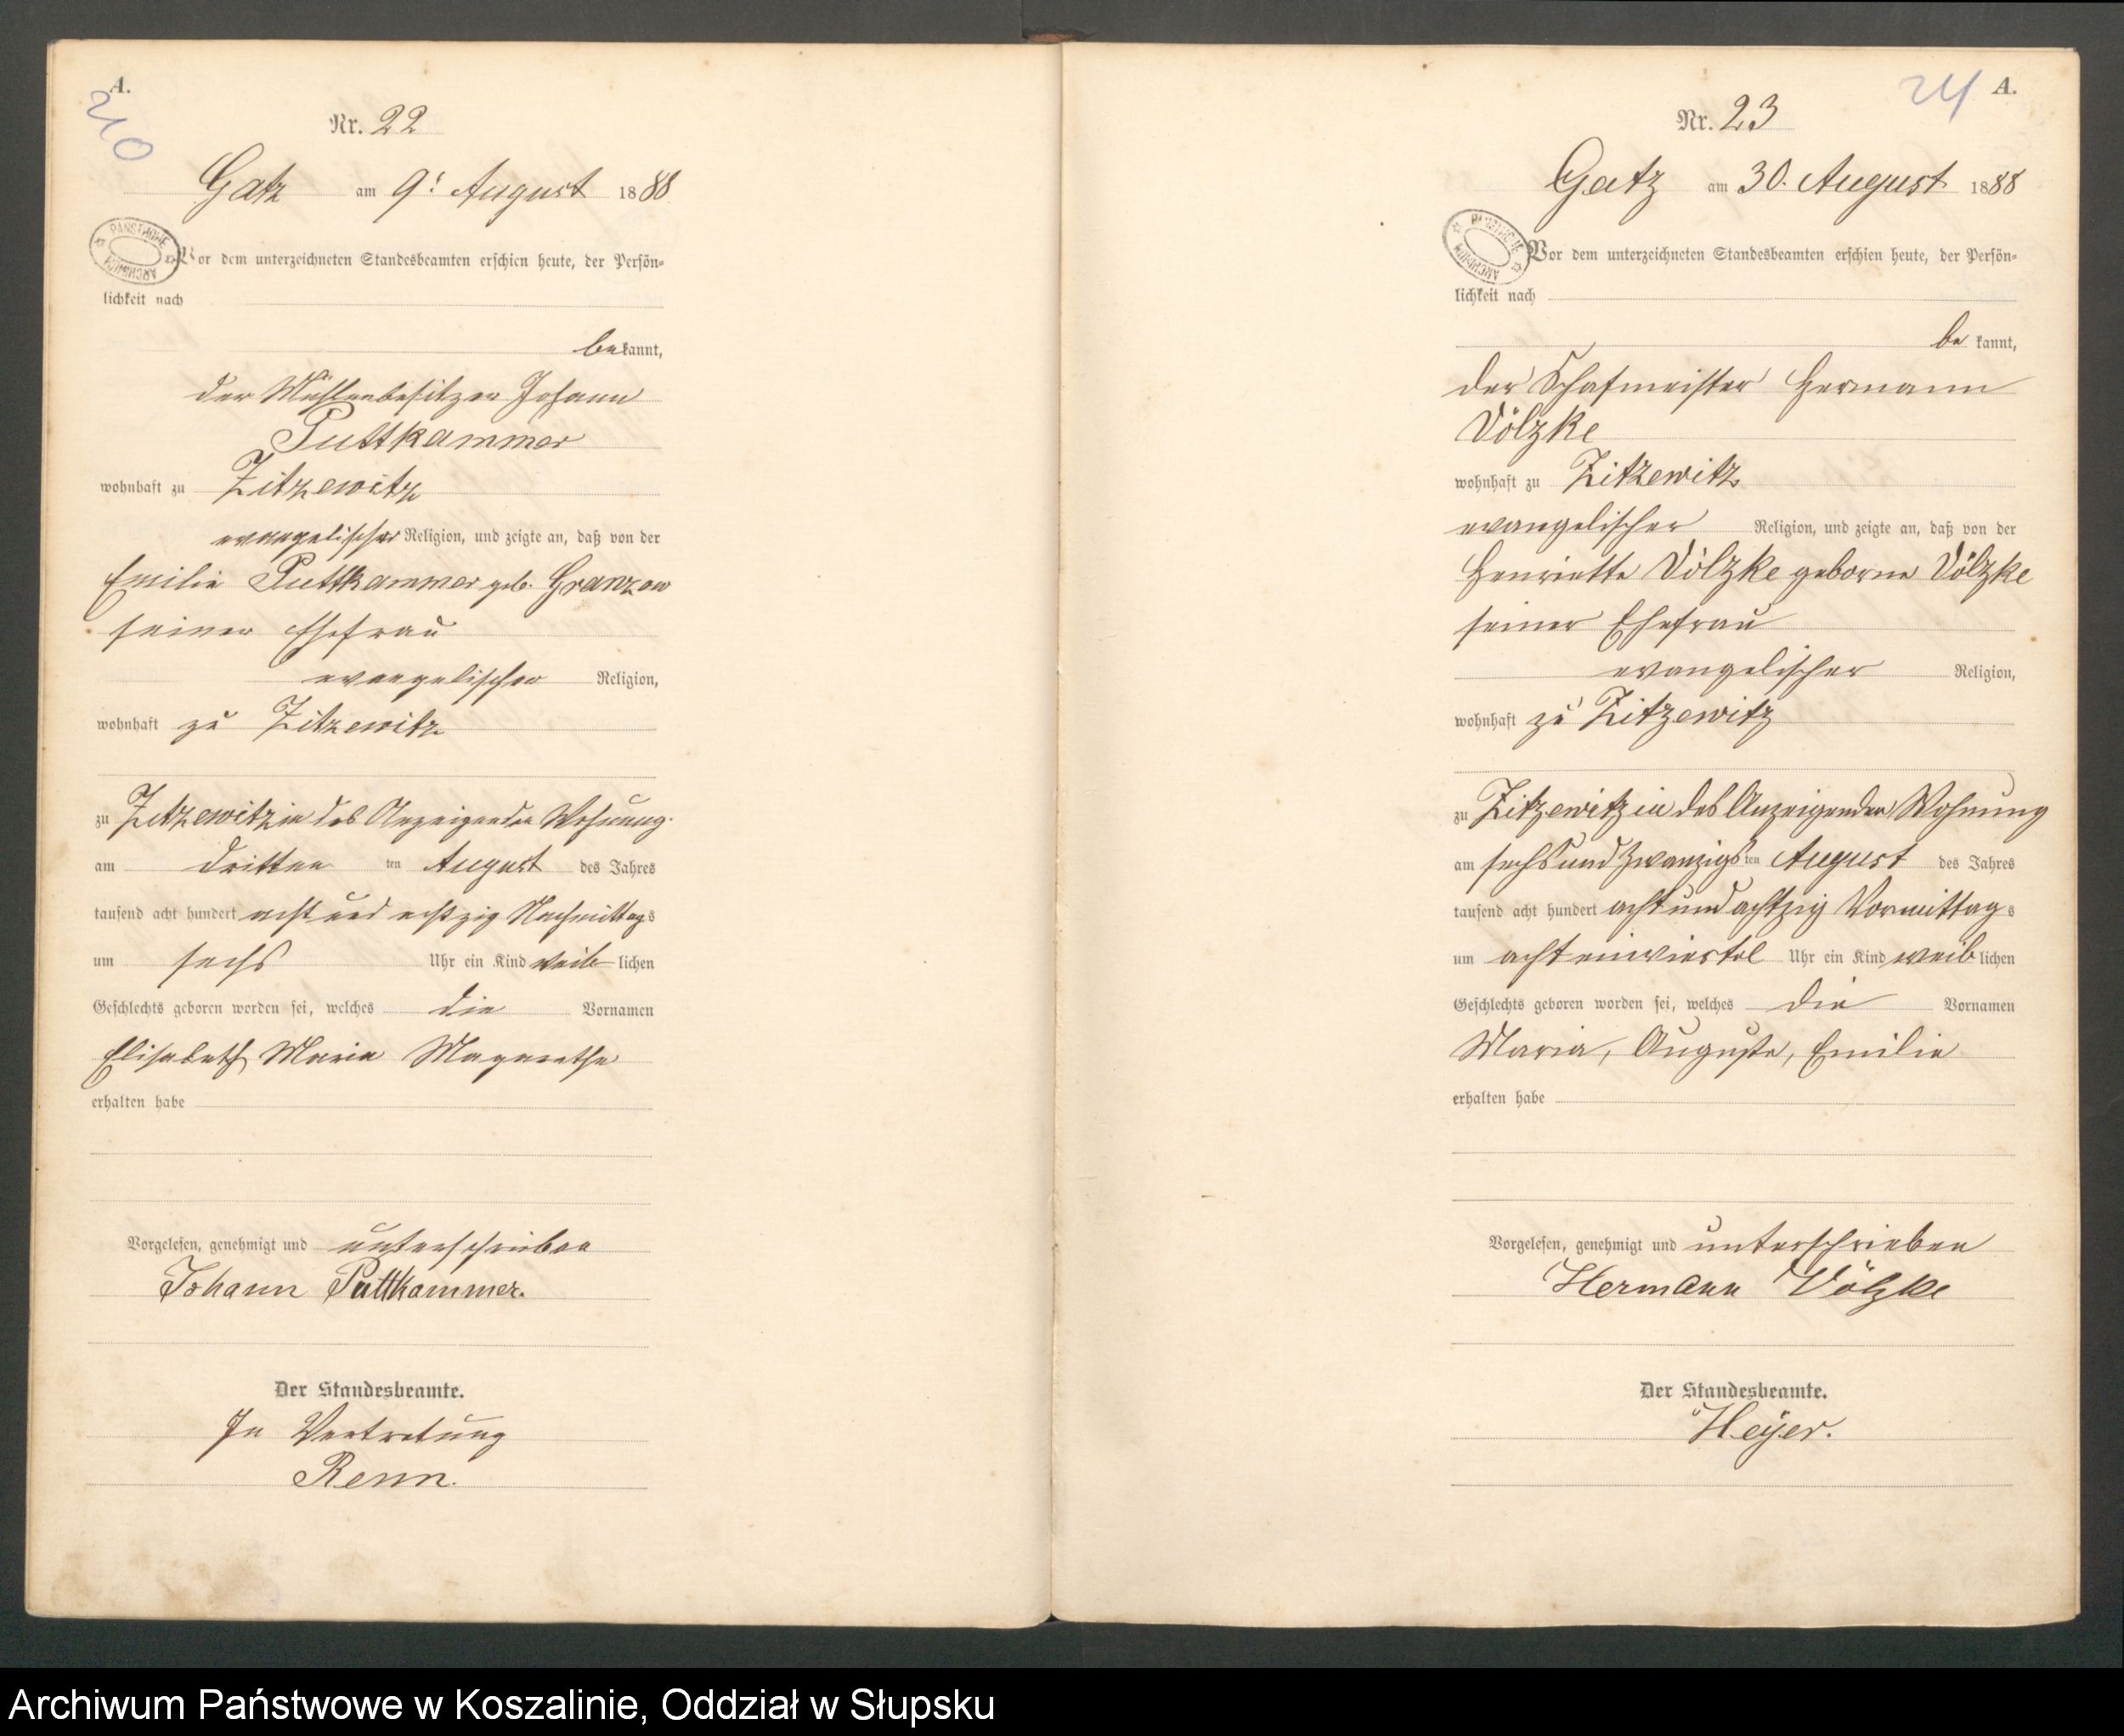 A.
240
Nr. 22
Gatz am 9t August 1888
PAŃSTWOWE ARCHIWUM
Vor dem unterzeichneten Standesbeamten erschien heute, der Persön-
lichkeit nach
bekannt,
der Mühlenbesitzer Johann
Puttkammer
wohnhaft zu Zitzewitz
evangelischer Religion, und zeigte an, daß von der
Emilie Puttkammer geb. Granzow
seiner Ehefrau
evangelischer Religion,
wohnhaft zu Zitzewitz
zu Zitzewitz in des Anzeigenden Wohnung
am dritten ten August des Jahres
tausend acht hundert acht und achtzig Nachmittags
um sechs Uhr ein Kind weiblichen
Geschlechts geboren worden sei, welches die Vornamen
Elisabeth Marie Magarethe
erhalten habe
Vorgelesen, genehmigt und unterschrieben
Johann Puttkammer.
Der Standesbeamte.
In Vertretung
Renn.
24 A.
Nr. 23
Gatz am 30. August 1888
PAŃSTWOWE ARCHIWUM
Vor dem unterzeichneten Standesbeamten erschien heute, der Persön-
lichkeit nach
be kannt,
der Schafmeister Hermann
Völzke
wohnhaft zu Zitzewitz
evangelischer Religion, und zeigte an, daß von der
Henriette Völzke geborne Völzke
seiner Ehefrau
evangelischer Religion,
wohnhaft zu Zitzewitz
zu Zitzewitz in des Anzeigenden Wohnung
am sechs und zwanzigsten August des Jahres
tausend acht hundert acht und achtzig Vormittags
um acht einviertel Uhr ein Kind weiblichen
Geschlechts geboren worden sei, welches die Vornamen
Maria, Auguste, Emilie
erhalten habe
Vorgelesen, genehmigt und unterschrieben
Hermann Völzke
Der Standesbeamte.
Heyer.
Archiwum Państwowe w Koszalinie, Oddział w Słupsku